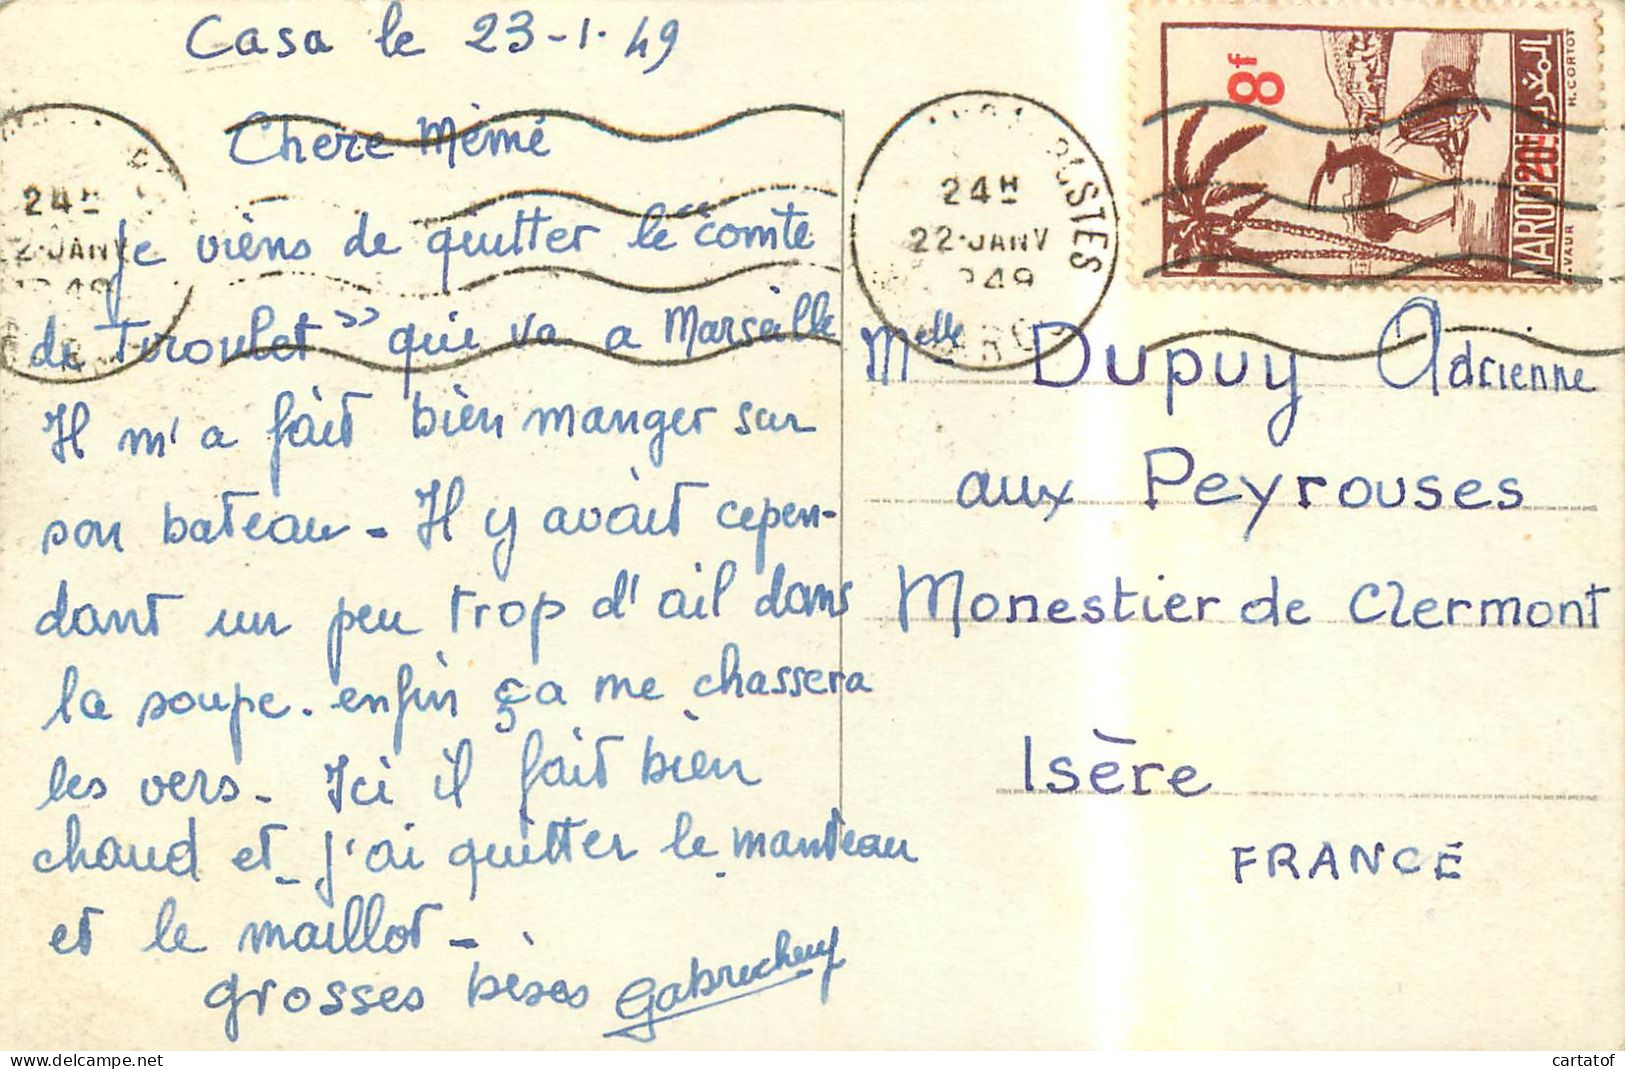 Casa le 23-1-49
Chere Mémé
Je viens de quitter le "comte
de Tiroulet" qui va a Marseille
Il m'a fait bien manger sur
son bateau - Il y avait cepen-
dant un peu trop d'ail dans
la soupe. enfin ça me chassera
les vers - Ici il fait bien
chaud et j'ai quitter le manteau
et le maillot -
grosses bèses
24H
22·JANV
POSTES
24H
22·JANV
8f
20F
MAROC
المغرب
H. CORTOT
VAUR
Melle Dupuy Adrienne
aux Peyrouses
Monestier de Clermont
Isère
FRANCE
cartatof